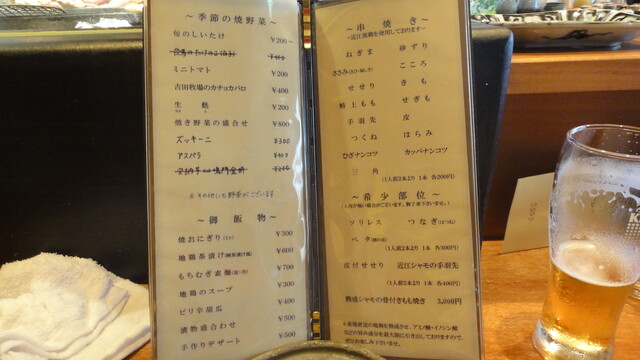 ～季節の焼野菜～
旬のしいたけ ¥200～
ミニトマト ¥200
吉田牧場のカチョカバロ ¥400
生麩 ¥200
焼き野菜の盛合せ ¥800
ズッキーニ ¥300
アスパラ ¥400
※その他にも野菜がございます
～御飯物～
焼おにぎり ¥300
地鶏茶漬け ¥600
もちむぎ素麺 ¥700
地鶏のスープ ¥300
ピリ辛胡瓜 ¥400
漬物盛合わせ ¥500
手作りデザート ¥500
～串焼き～
ねぎま 砂ずり
ささみ こころ
せせり きも
特上もも せぎも
手羽先 皮
つくね はらみ
ひざナンコツ カッパナンコツ
三角
(1人前2本より 1本 各200円)
～希少部位～
ソリレス つなぎ
ペタ
(1人前2本より 1本 各300円)
皮付せせり 近江シャモの手羽先
(1人前2本より 1本 各400円)
熟成シャモの骨付きもも焼き 3,800円